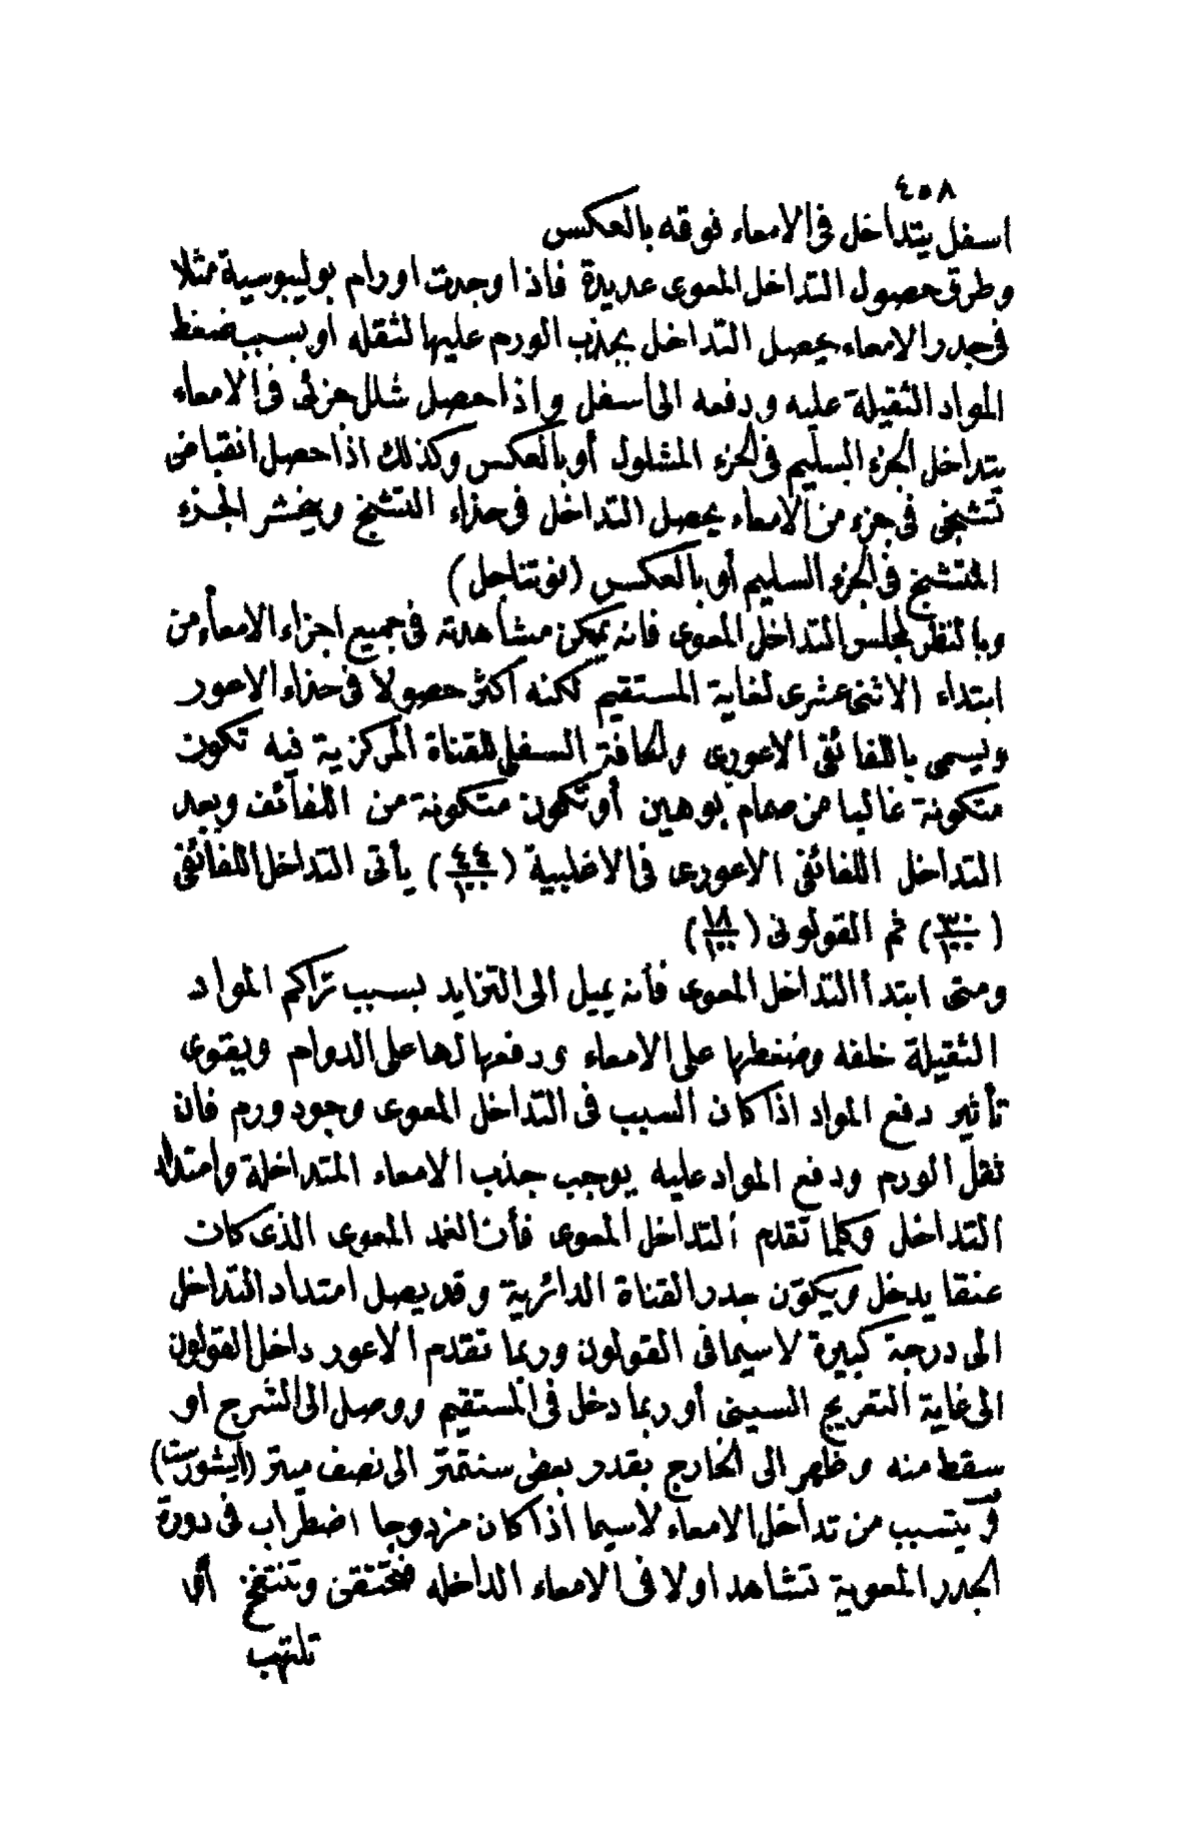 ٤٥٨
اسفل يتداخل فى الامعاء فوقه بالعكس
وطرق حصول التداخل المعوى عديدة فاذا وجدت اورام بوليبوسية مثلا
فى جدر الامعاء يحصل التداخل بجذب الورم عليها لثقله أو بسبب ضغط
المواد الثقيلة عليه ودفعه الى أسفل واذا حصل شلل جزئى فى الامعاء
يتداخل الجزء السليم فى الجزء المشلول أو بالعكس وكذلك اذا حصل انقباض
تشنجى فى جزء من الامعاء يحصل التداخل فى حذاء التشنج وينحشر الجزء
المتشنج فى الجزء السليم أو بالعكس (نوتناجل)
وبالنظر لمجلس التداخل المعوى فانه يمكن مشاهدته فى جميع اجزاء الامعاء من
ابتداء الاثنى عشرى لغاية المستقيم لكنه اكثر حصولا فى حذاء الاعور
ويسمى باللفائفى الاعورى والحافة السفلى للقناة المركزية فيه تكون
متكونة غالبا من صمام بوهين أو تكون متكونة من اللفائف وبعد
التداخل اللفائفى الاعورى فى الاغلبية (٤٤/١٠٠) يأتى التداخل اللفائفى
(٣٠/١٠٠) ثم القولونى (١٨/١٠٠)
ومتى ابتدأ التداخل المعوى فأنه يميل الى التزايد بسبب تراكم المواد
الثقيلة خلفه وضغطها على الامعاء ودفعها لها على الدوام ويقوى
تأثير دفع المواد اذا كان السبب فى التداخل المعوى وجود ورم فان
ثقل الورم ودفع المواد عليه يوجب جذب الامعاء المتداخلة وامتداد
التداخل وكلما تقدم التداخل المعوى فأن الغمد المعوى الذى كان
عنقا يدخل ويكوّن جدر القناة الدائرية وقد يصل امتداد التداخل
الى درجة كبيرة لاسيما فى القولون وربما تقدم الاعور داخل القولون
الى غاية التعريج السينى أو ربما دخل فى المستقيم ووصل الى الشرج او
سقط منه وظهر الى الخارج بقدر بعض سنتمتر الى نصف ميتر (ايشورست)
و يتسبب من تداخل الامعاء لاسيما اذا كان مزدوجا اضطراب فى دورة
الجدر المعوية تشاهد اولا فى الامعاء الداخله فتحتقن وتنتفخ أو
تلتهب